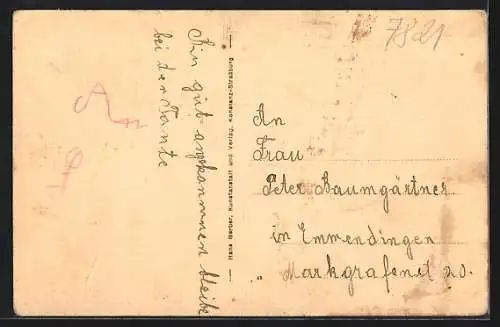 7821
Bin gut angekommen bleibe
bei der Tante
Hans Gerber, Kunstanstalt und Verlag, Konstanz-Strassburg
An
Frau
Peter Baumgärtner
in Emmendingen
Markgrafenst 20.
An